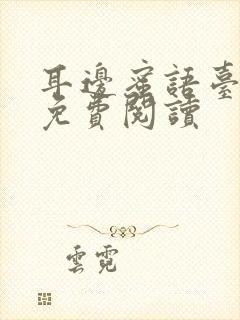 耳邊蜜語臺
免費閱讀
雲霓